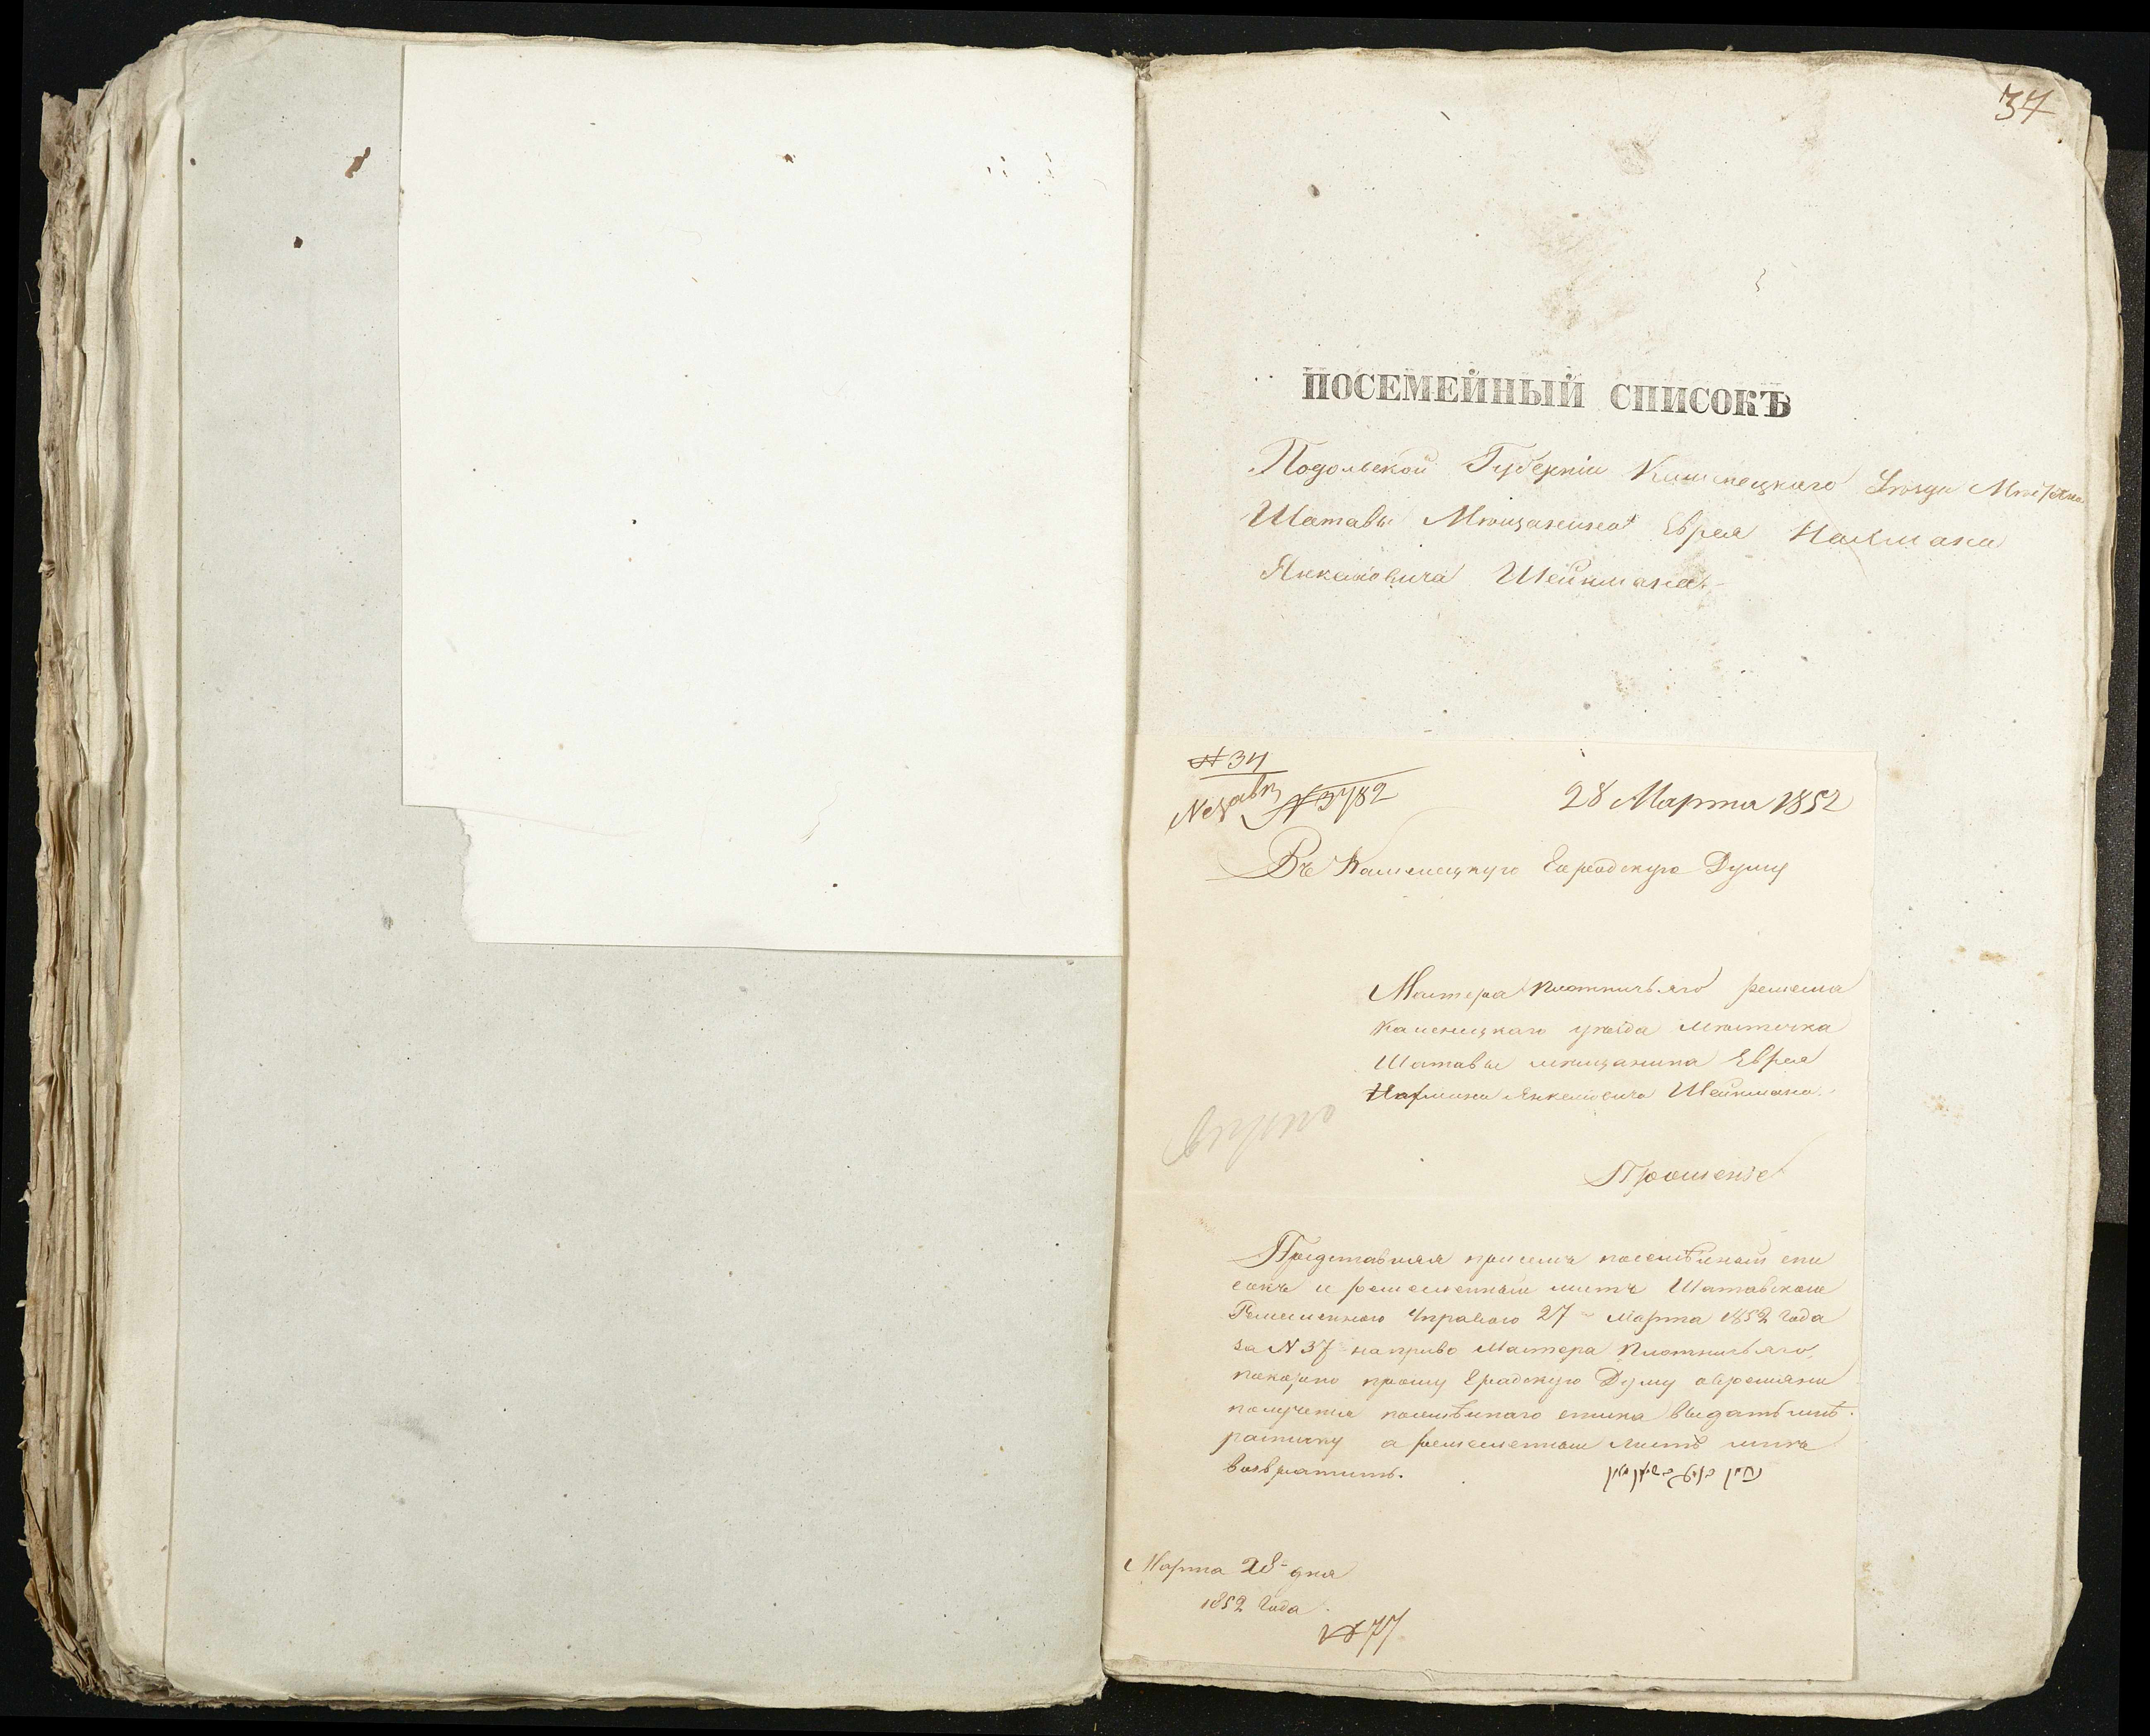 37
ПОСЕМЕЙНЫЙ СПИСОКЪ
Подольской Губерніи Каменецкаго Уѣзда Мѣстечка
Шатавы Мѣщанина Еврея Нахмана
Янкелевича Шейнмана
№ 37
№ 3782
28 Марта 1852
Въ Каменецкую Градскую Думу
Мастера плотничьяго ремесла
Каменецкаго уѣзда мѣстечка
Шатавы мѣщанина Еврея
Нахмана Янкелевича Шейнмана
Прошеніе
Представляя при семъ посемѣйный спи
сокъ и ремесленный листъ Шатавскою
Ремесленною Управою 27 Марта 1852 года
за N 37 на право Мастера Плотничьяго,
покорно прошу Градскую Думу
получения посемѣйнаго списка выдать мнѣ
росписку а ремесленный листъ мнѣ
возвратить.
Марта 28 дня
1852 года
№ 77